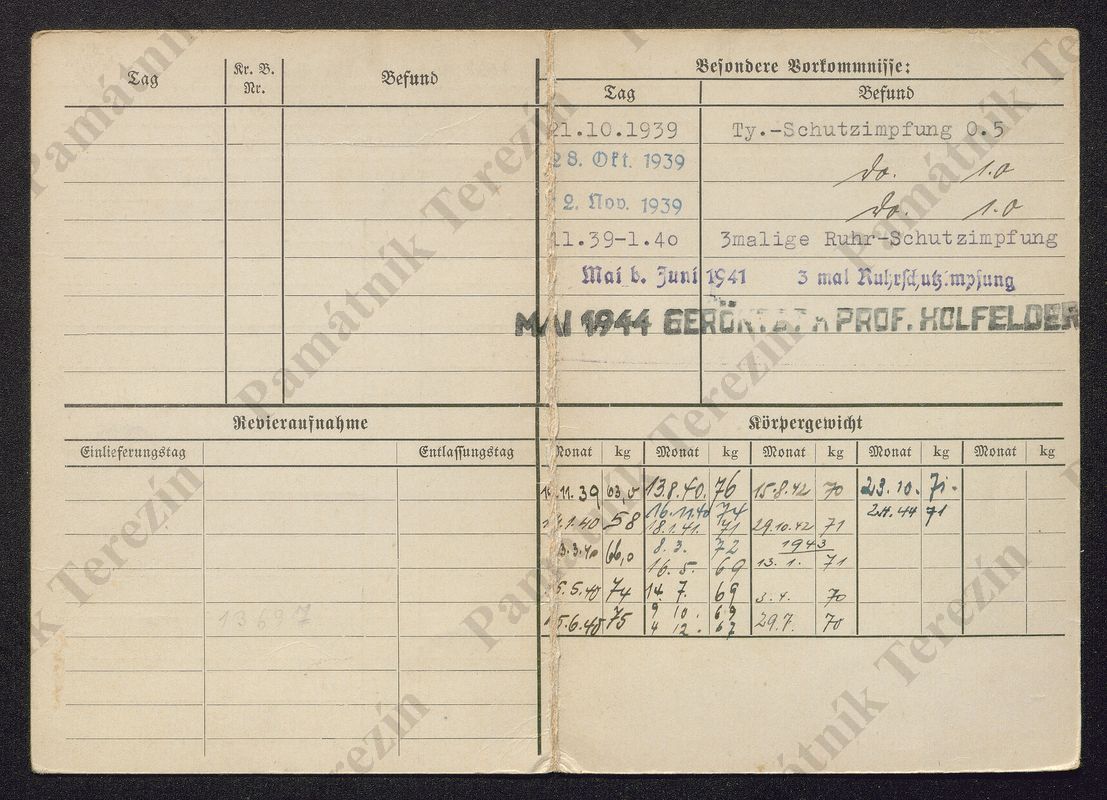 Tag Kr. B. Nr. Befund
Besondere Vorkommnisse:
Tag Befund
21.10.1939 Ty.-Schutzimpfung 0.5
28. Okt. 1939 do. 1.0
2. Nov. 1939 do. 1.0
11.39-1.40 3malige Ruhr-Schutzimpfung
Mai b. Juni 1941 3 mal Ruhrschutzimpfung
MAI 1944 PROF. HOLFELDER
Revieraufnahme
Einlieferungstag Entlassungstag
13697
Körpergewicht
Monat kg Monat kg Monat kg Monat kg Monat kg
11.39 63,5 13.8.40. 76 15.8.42 70 23.10. 71.
16.11.40 74 2.4.44 71
1.40 58 18.1.41. 71 29.10.42 71
3.3.40 66,0 8.3. 72 1943
16.5. 69 13.1. 71
5.5.40 74 14.7. 69 3.4. 70
9 10. 69
5.6.40 75 4 12. 67 29.7. 70
Památník Terezín
Památník Terezín
Památník Terezín
Památník Terezín
Památník Terezín
Památník Terezín